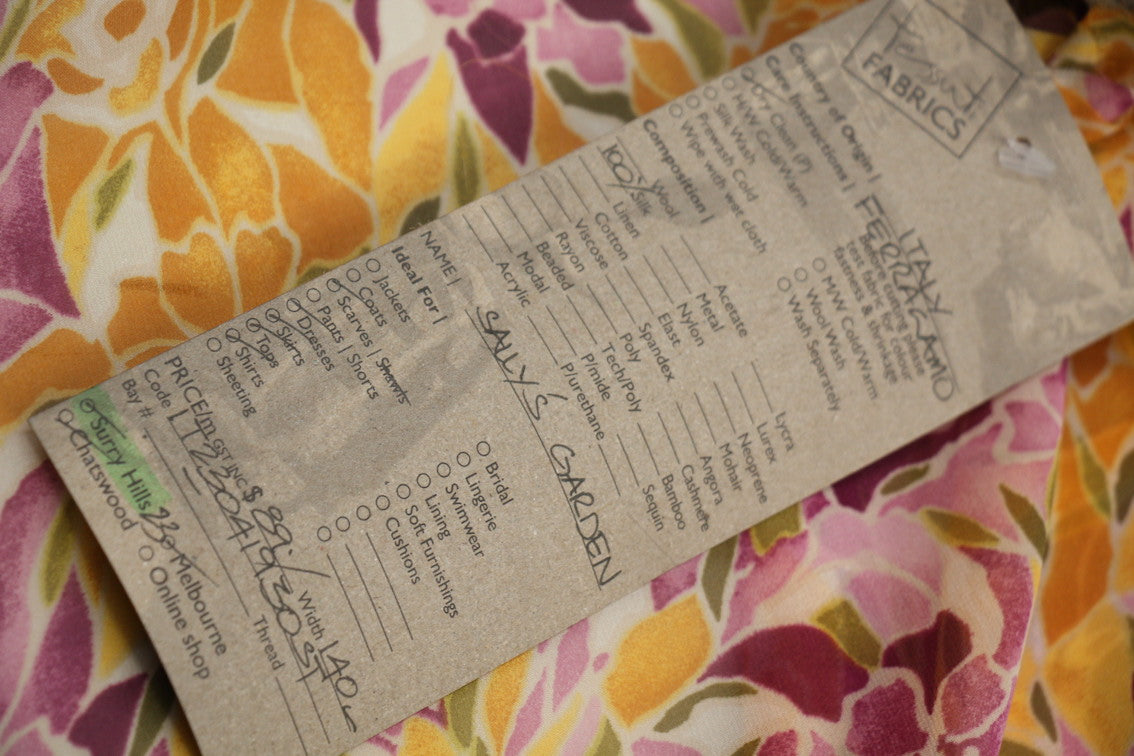 Tessuti
FABRICS
Country of Origin | ITALY
FERRAGAMO
Care Instructions |
Before cutting please
test fabric for colour
fastness & shrinkage
Dry Clean (P)
H/W Cold/Warm
Silk Wash
Prewash Cold
Wipe with wet cloth
M/W Cold/Warm
Wool Wash
Wash Separately
Composition |
Wool
100% Silk
Linen
Cotton
Viscose
Rayon
Beaded
Modal
Acrylic
Acetate
Metal
Nylon
Elast
Spandex
Poly
Tech/Poly
P/mide
P/urethane
Lycra
Lurex
Neoprene
Mohair
Angora
Cashmere
Bamboo
Sequin
NAME | SALLY'S GARDEN
Ideal For |
Jackets
Coats
Scarves | Shawls
Pants | Shorts
Dresses
Skirts
Tops
Shirts
Sheeting
Bridal
Lingerie
Swimwear
Lining
Soft Furnishings
Cushions
PRICE/m GST INC $ 89 Width 140
Code | Thread
Bay #
Surry Hills Melbourne
Chatswood Online shop